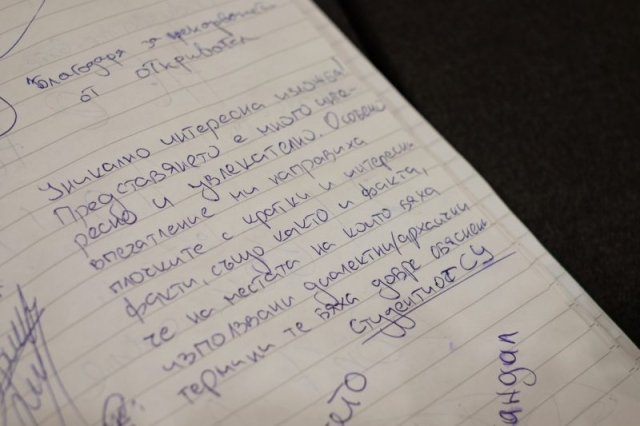 "Благодаря за
от откривател
Уникално интересна изложба!
Представянето е много инте-
ресно и увлекателно. Особено
впечатление ни направиха
плочките с кратки и интересни
факти, също както и факта,
че на местата на които бяха
използвани диалектни/архаични
термини те бяха добре обяснени
Студенти от СУ